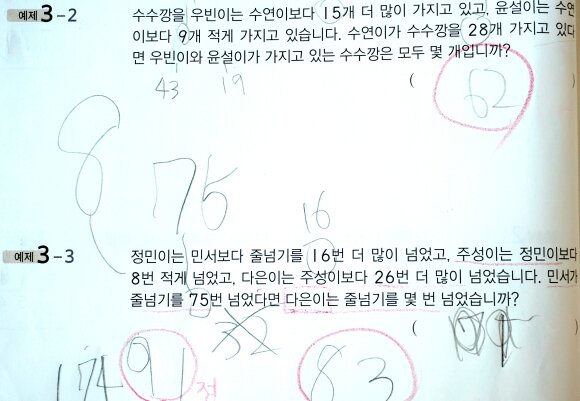 예제 3-2 수수깡을 우빈이는 수연이보다 15개 더 많이 가지고 있고, 윤설이는 수연
이보다 9개 적게 가지고 있습니다. 수연이가 수수깡을 28개 가지고 있다
면 우빈이와 윤설이가 가지고 있는 수수깡은 모두 몇 개입니까?
43 19
( 62 )
8 75
16
예제 3-3 정민이는 민서보다 줄넘기를 16번 더 많이 넘었고, 주성이는 정민이보다
8번 적게 넘었고, 다은이는 주성이보다 26번 더 많이 넘었습니다. 민서가
줄넘기를 75번 넘었다면 다은이는 줄넘기를 몇 번 넘었습니까?
32 (
174 91 점 83